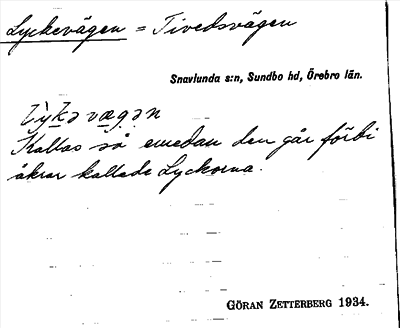 Lyckevägen = Tivedsvägen
Snavlunda s:n, Sundbo hd, Örebro län.
lykə vægən
Kallas så emedan den går förbi
åkrar kallade Lyckorna.
GÖRAN ZETTERBERG 1934.